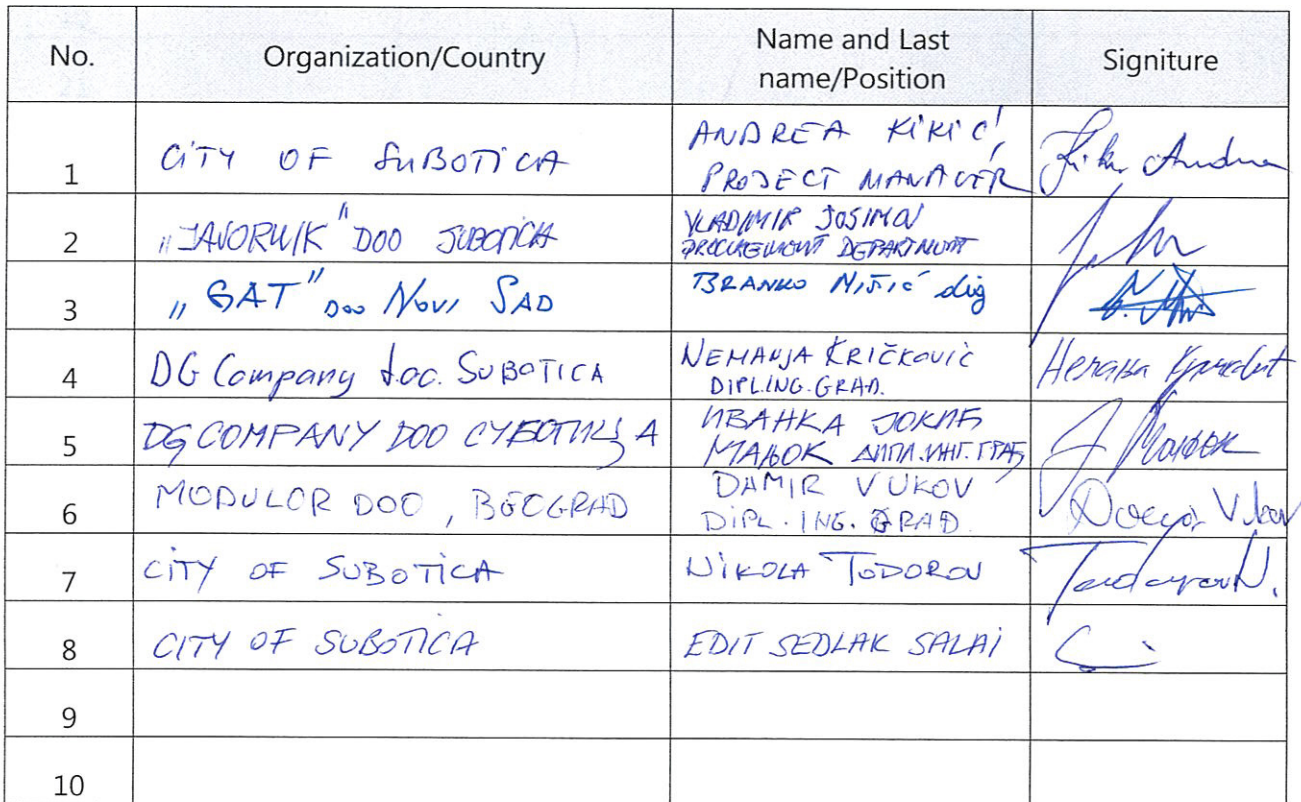 No. Organization/Country Name and Last name/Position Signiture
1 CITY OF SUBOTICA ANDREA KIKIĆ, PROJECT MANAGER
2 „JAVORNIK" DOO SUBOTICA VLADIMIR JOSIMOV
DEPARTMENT
3 „GAT" DOO NOVI SAD BRANKO NIŠIĆ dig
4 DG Company d.o.o. SUBOTICA NEMANJA KRIČKOVIĆ
DIPL.ING.GRAĐ.
5 DG COMPANY DOO СУБОТИЦА ИВАНКА ЈОКАБ
МАЊОК ДИПЛ.ИНГ.ГРАЂ
6 MODULOR DOO, BEOGRAD DAMIR VUKOV
DIPL. ING. GRAĐ.
7 CITY OF SUBOTICA NIKOLA TODOROV
8 CITY OF SUBOTICA EDIT SEDLAK SALAI
9
10